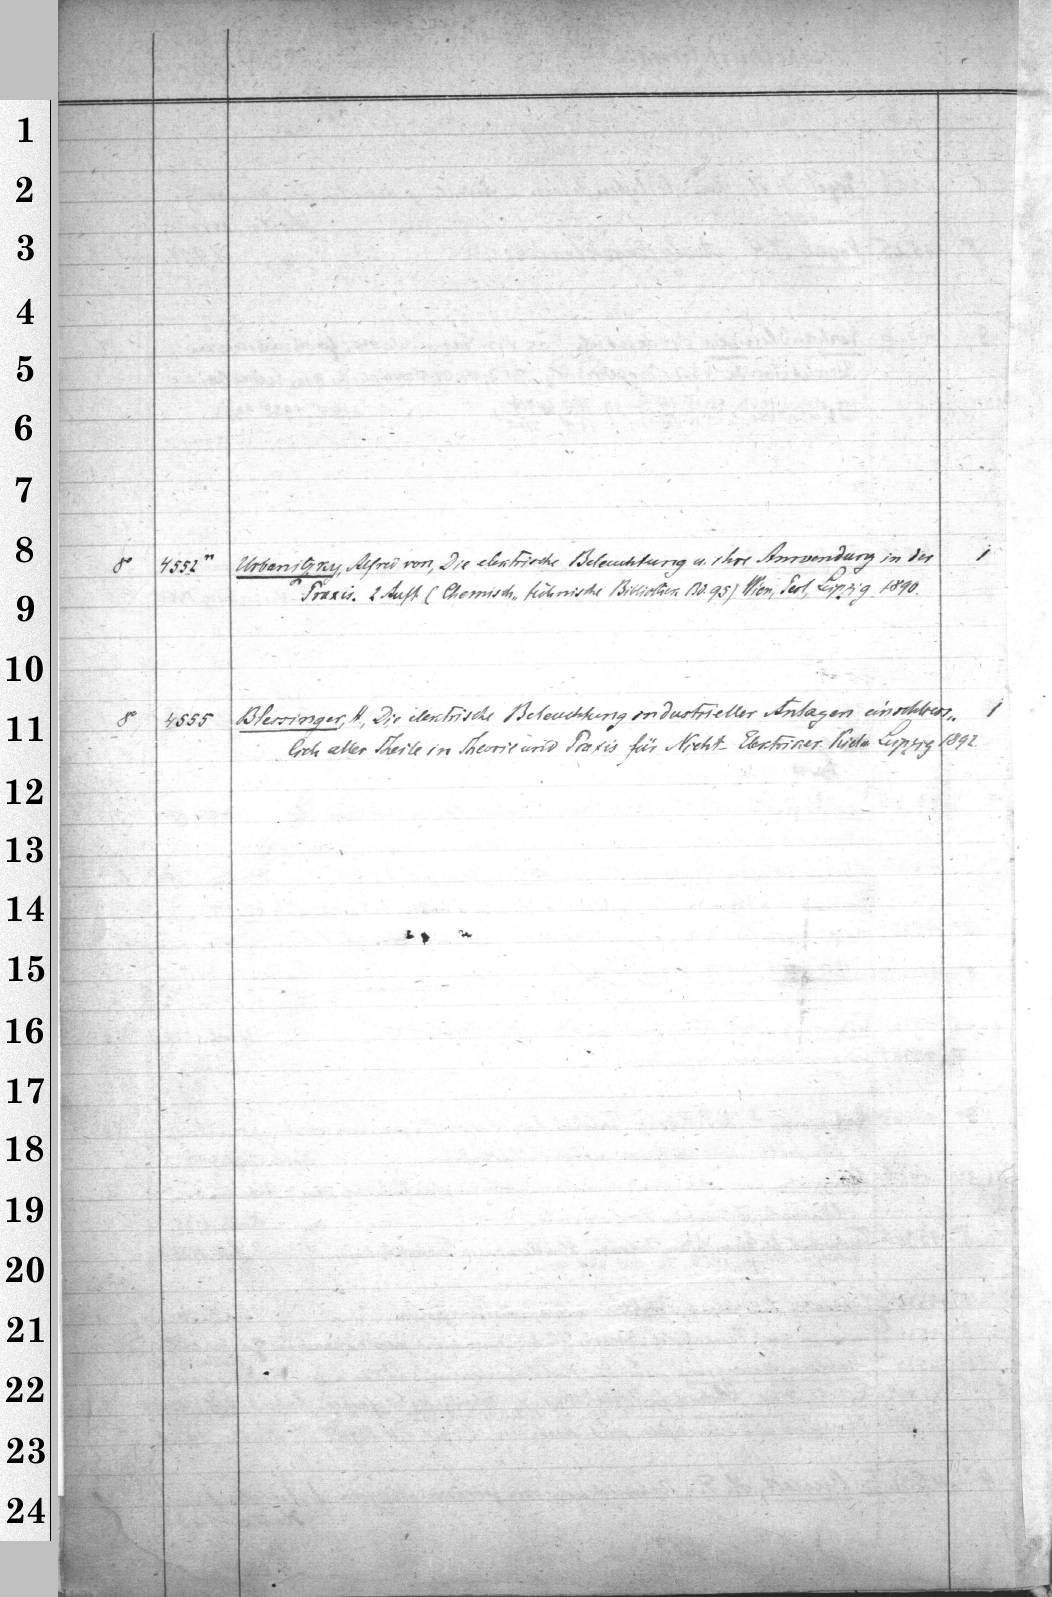 1
2
3
4
5
6
7
8
8° 4552ⁿ Urbanitzky, Alfred von, Die elektrische Beleuchtung u. ihre Anwendung in der 1
9
Praxis. 2 Aufl. (Chemisch-technische Bibliothek Bd. 95) Wien, Pest, Leipzig 1890.
10
11
8° 4555 Blessinger, H., Die elektrische Beleuchtung industrieller Anlagen einschliess- 1
lich aller Theile in Theorie und Praxis für Nicht-Elektriker. Leipzig 1892
12
13
14
15
16
17
18
19
20
21
22
23
24